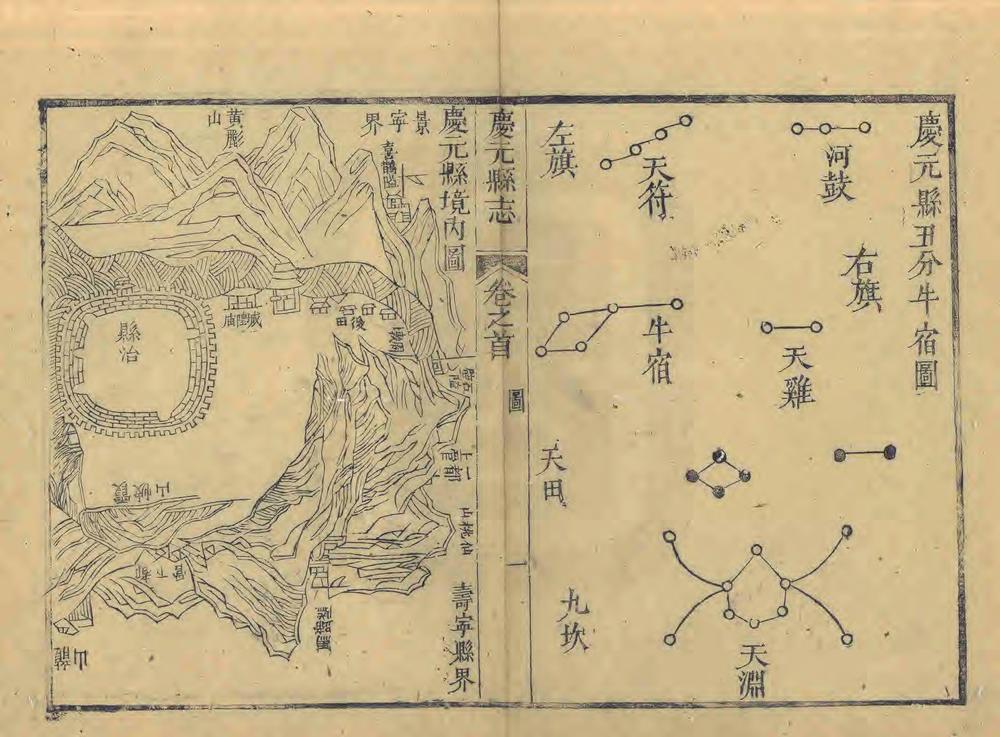 慶元縣丑分牛宿圖
河鼓
右旗
天雞
天符
左旗
牛宿
天田
九坎
天淵
慶元縣志
卷之首
圖
一
慶元縣境內圖
景寧界
黃
山
縣治
城隍廟
後田
霞帔山
仙桃山
壽寧縣界